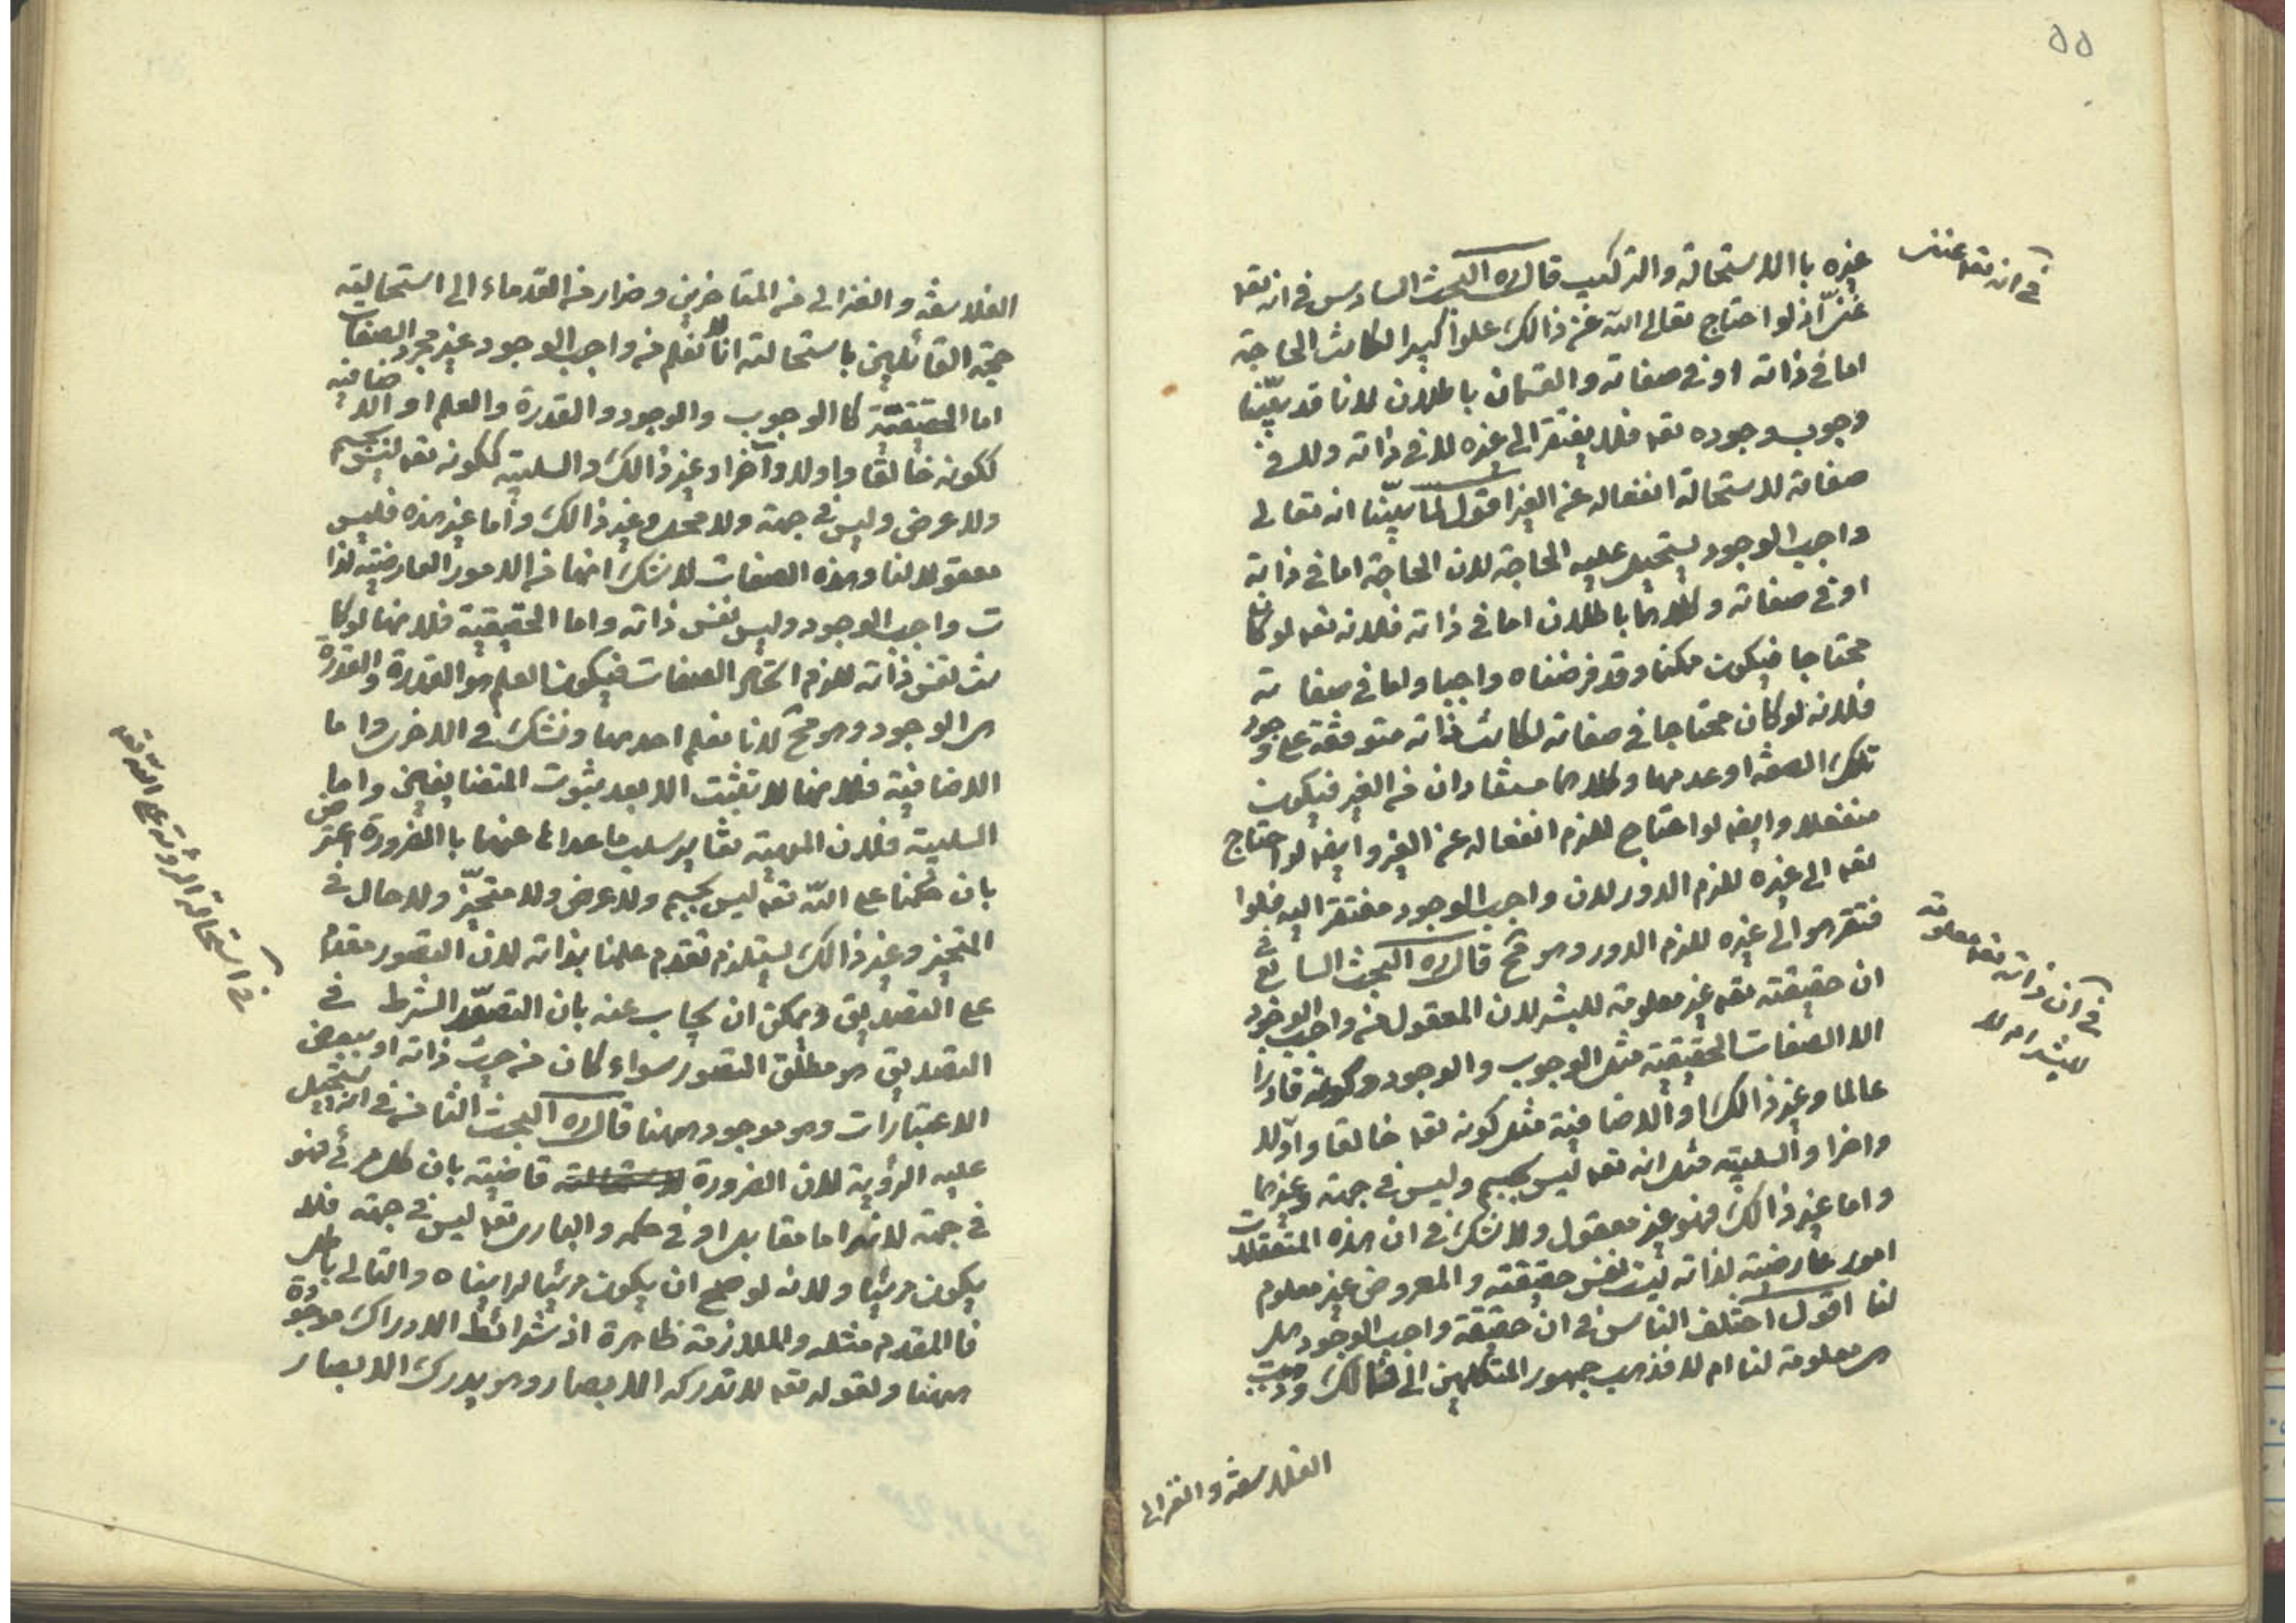 ٥٥
في انه تعه غني
غيره باالاستحالة والتركيب قال ره البحث السادس في انه تعه
غنيّ اذ لو احتاج تعالى الله عن ذالك علوا كبيرا لكانت الحاجة
اما في ذاته او في صفاته والقسمان باطلان لانا قد بيّنا
وجوب وجوده تعه فلا يفتقر الى غيره لا في ذاته ولا في
صفاته لاستحالة انفعاله عن الغير اقول لما بيّنا انه تعالى
واجب الوجود يستحيل عليه الحاجة لان الحاجة اما في ذاته
او في صفاته وكلاهما باطلان اما في ذاته فلانه تعه لو كان
محتاجا فيكون ممكنا وقد فرضناه واجبا واما في صفا ته
فلانه لو كان محتاجا في صفاته لكانت ذاته متوقفة على وجود
تلك الصفة او عدمها وكلاهما مستفادان من الغير فيكون
منفعلا وايضا لو احتاج للزم انفعاله عن الغير وايضا لو احتاج
تعه الى غيره للزم الدور لان واجب الوجود مفتقر اليه فلوا
فتقر هو الى غيره للزم الدور وهو مح قال ره البحث السابع في
في ان ذاته تعه معلومة
للبشر ام لا
ان حقيقته تعه غير معلومة للبشر لان المعقول منه واجب الوجود
الا الصفات الحقيقية مثل الوجوب والوجود وكونه قادرا
عالما وغير ذالك او الاضافية مثل كونه تعه خالقا واوّلا
واخرا والسلبية مثل انه تعه ليس بجسم وليس في جهة وغيرها
واما غير ذالك فهو غير معقول ولا شك في ان هذه المتعقلات
امور عارضية لذاته ليت نفس حقيقته والمعروض غير معلوم
لنا اقول اختلف الناس في ان حقيقة واجب الوجود هل
هى معلومة لنا ام لا فذهب جمهور المتكلمين الى ذالك وذهب
الفلاسفة والغزالى
الفلاسفة والغزالى من المتاخرين وضرار من القدماء الى استحالته
حجة القائلين باستحالته انا لا نعلم من واجب الوجود غير مجرد الصفات
اما الحقيقيّة كا الوجوب والوجود والقدرة والعلم او الاضافية
ككونه خالقا واولا واخرا وغير ذالك والسلبية ككونه تعه ليس بجسم
ولا عرض وليس في جهة ولا محل وغير ذالك واما غير هذه فليس
معقولا لنا وهذه الصفات لا شك انها من الامور العارضية لذا
ت واجب الوجود وليس نفس ذاته واما الحقيقية فلانها لو كا
نت نفس ذاته للزم اتحاد الصفات فيكون العلم هو القدرة والقدرة
هى الوجود وهو مح لانا نعلم احدهما ونشك في الاخرى واما
الاضافية فلانها لا تثبت الا بعد ثبوت المتضايفين واما
السلبية فلان المهية تغاير سلب ما عداها عنها با الضرورة اعترض
بان حكمنا على الله تعه ليس بجسم ولا عرض ولا متحيّز ولا حال في
المتحيز وغير ذالك يستلزم تقدم علمنا بذاته لان التصور مقدم
على التصديق ويمكن ان يجاب عنه بان التصوّر الشرط في
التصديق هو مطلق التصور سواء كان من حيث ذاته او ببعض
الاعتبارات وهو موجود ههنا قال ره البحث الثامن في انه يستحيل
في استحالة الرؤية على الله تعه
عليه الرؤية لان الضرورة قاضية بان كل مرئي فهو
في جهة لانه اما مقابل او في حكمه والبارى تعه ليس في جهة فلا
يكون مرئيا ولانه لو صح ان يكون مرئيا لرايناه والتالى باطل
فا المقدم مثله والملازمة ظاهرة اذ شرائط الادراك موجودة
ههنا ولقوله تعه لا تدركه الابصار وهو يدرك الابصار